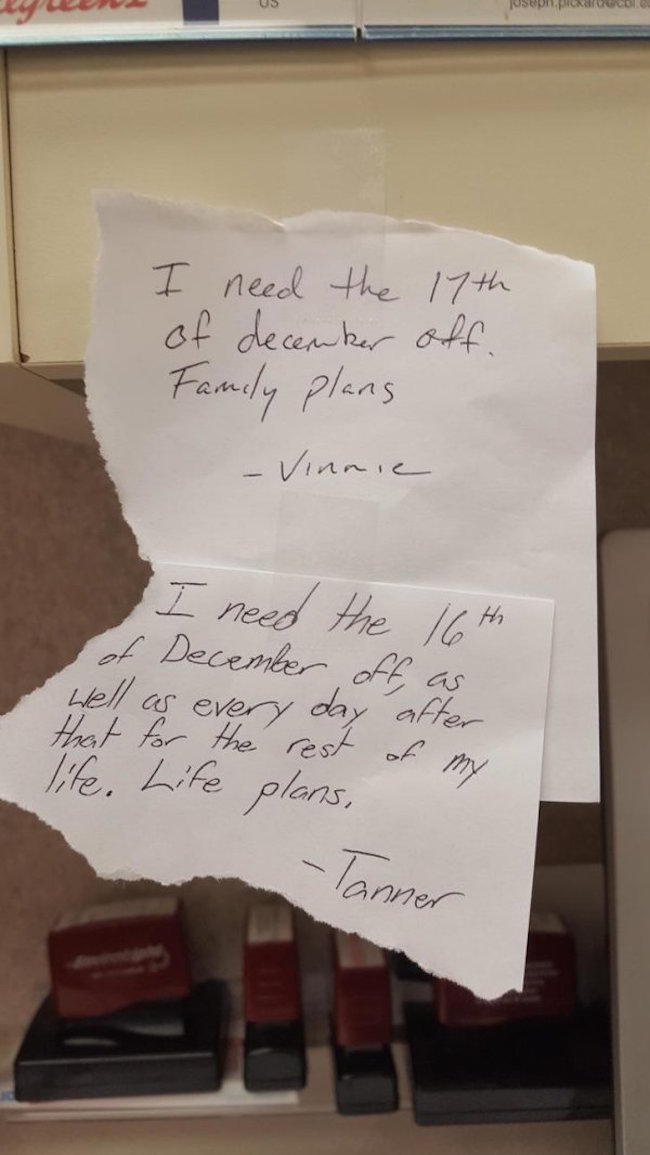 US
I need the 17th
of december off.
Family plans
- Vinnie
I need the 16th
of December off, as
well as every day after
that for the rest of my
life. Life plans.
- Tanner